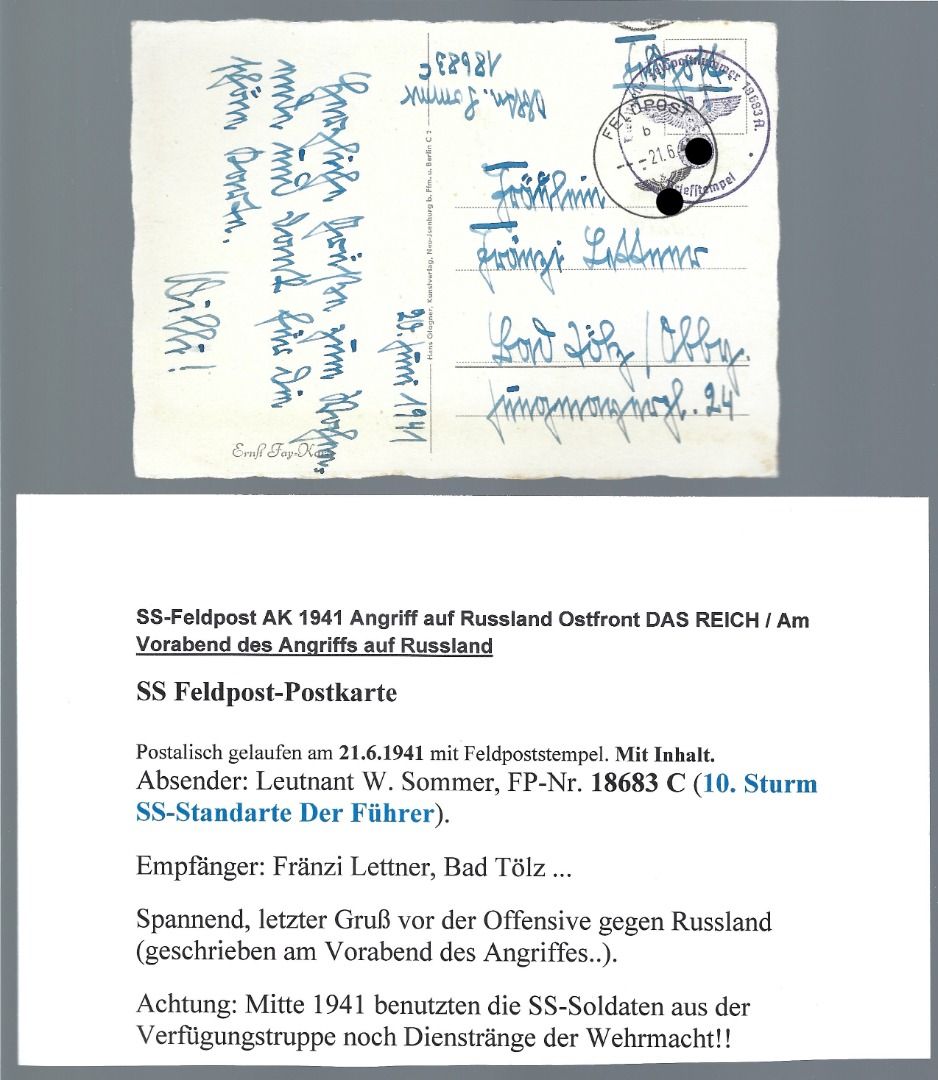 Feldpost
Feldpostnummer 18683
Briefstempel
FELDPOST
b
21.6.
Ltn. Sommer
18683 C
Fräulein
Fränzi Lettner
Bad Tölz / Obby.
24
20. Juni 1941
Grüßen zum
und
Willi!
Hans Glogner, Kunstverlag, Neu-Isenburg b. Ffm. u. Berlin C 2
Ernst Fay-
SS-Feldpost AK 1941 Angriff auf Russland Ostfront DAS REICH / Am
Vorabend des Angriffs auf Russland
SS Feldpost-Postkarte
Postalisch gelaufen am 21.6.1941 mit Feldpoststempel. Mit Inhalt.
Absender: Leutnant W. Sommer, FP-Nr. 18683 C (10. Sturm
SS-Standarte Der Führer).
Empfänger: Fränzi Lettner, Bad Tölz ...
Spannend, letzter Gruß vor der Offensive gegen Russland
(geschrieben am Vorabend des Angriffes..).
Achtung: Mitte 1941 benutzten die SS-Soldaten aus der
Verfügungstruppe noch Dienstränge der Wehrmacht!!